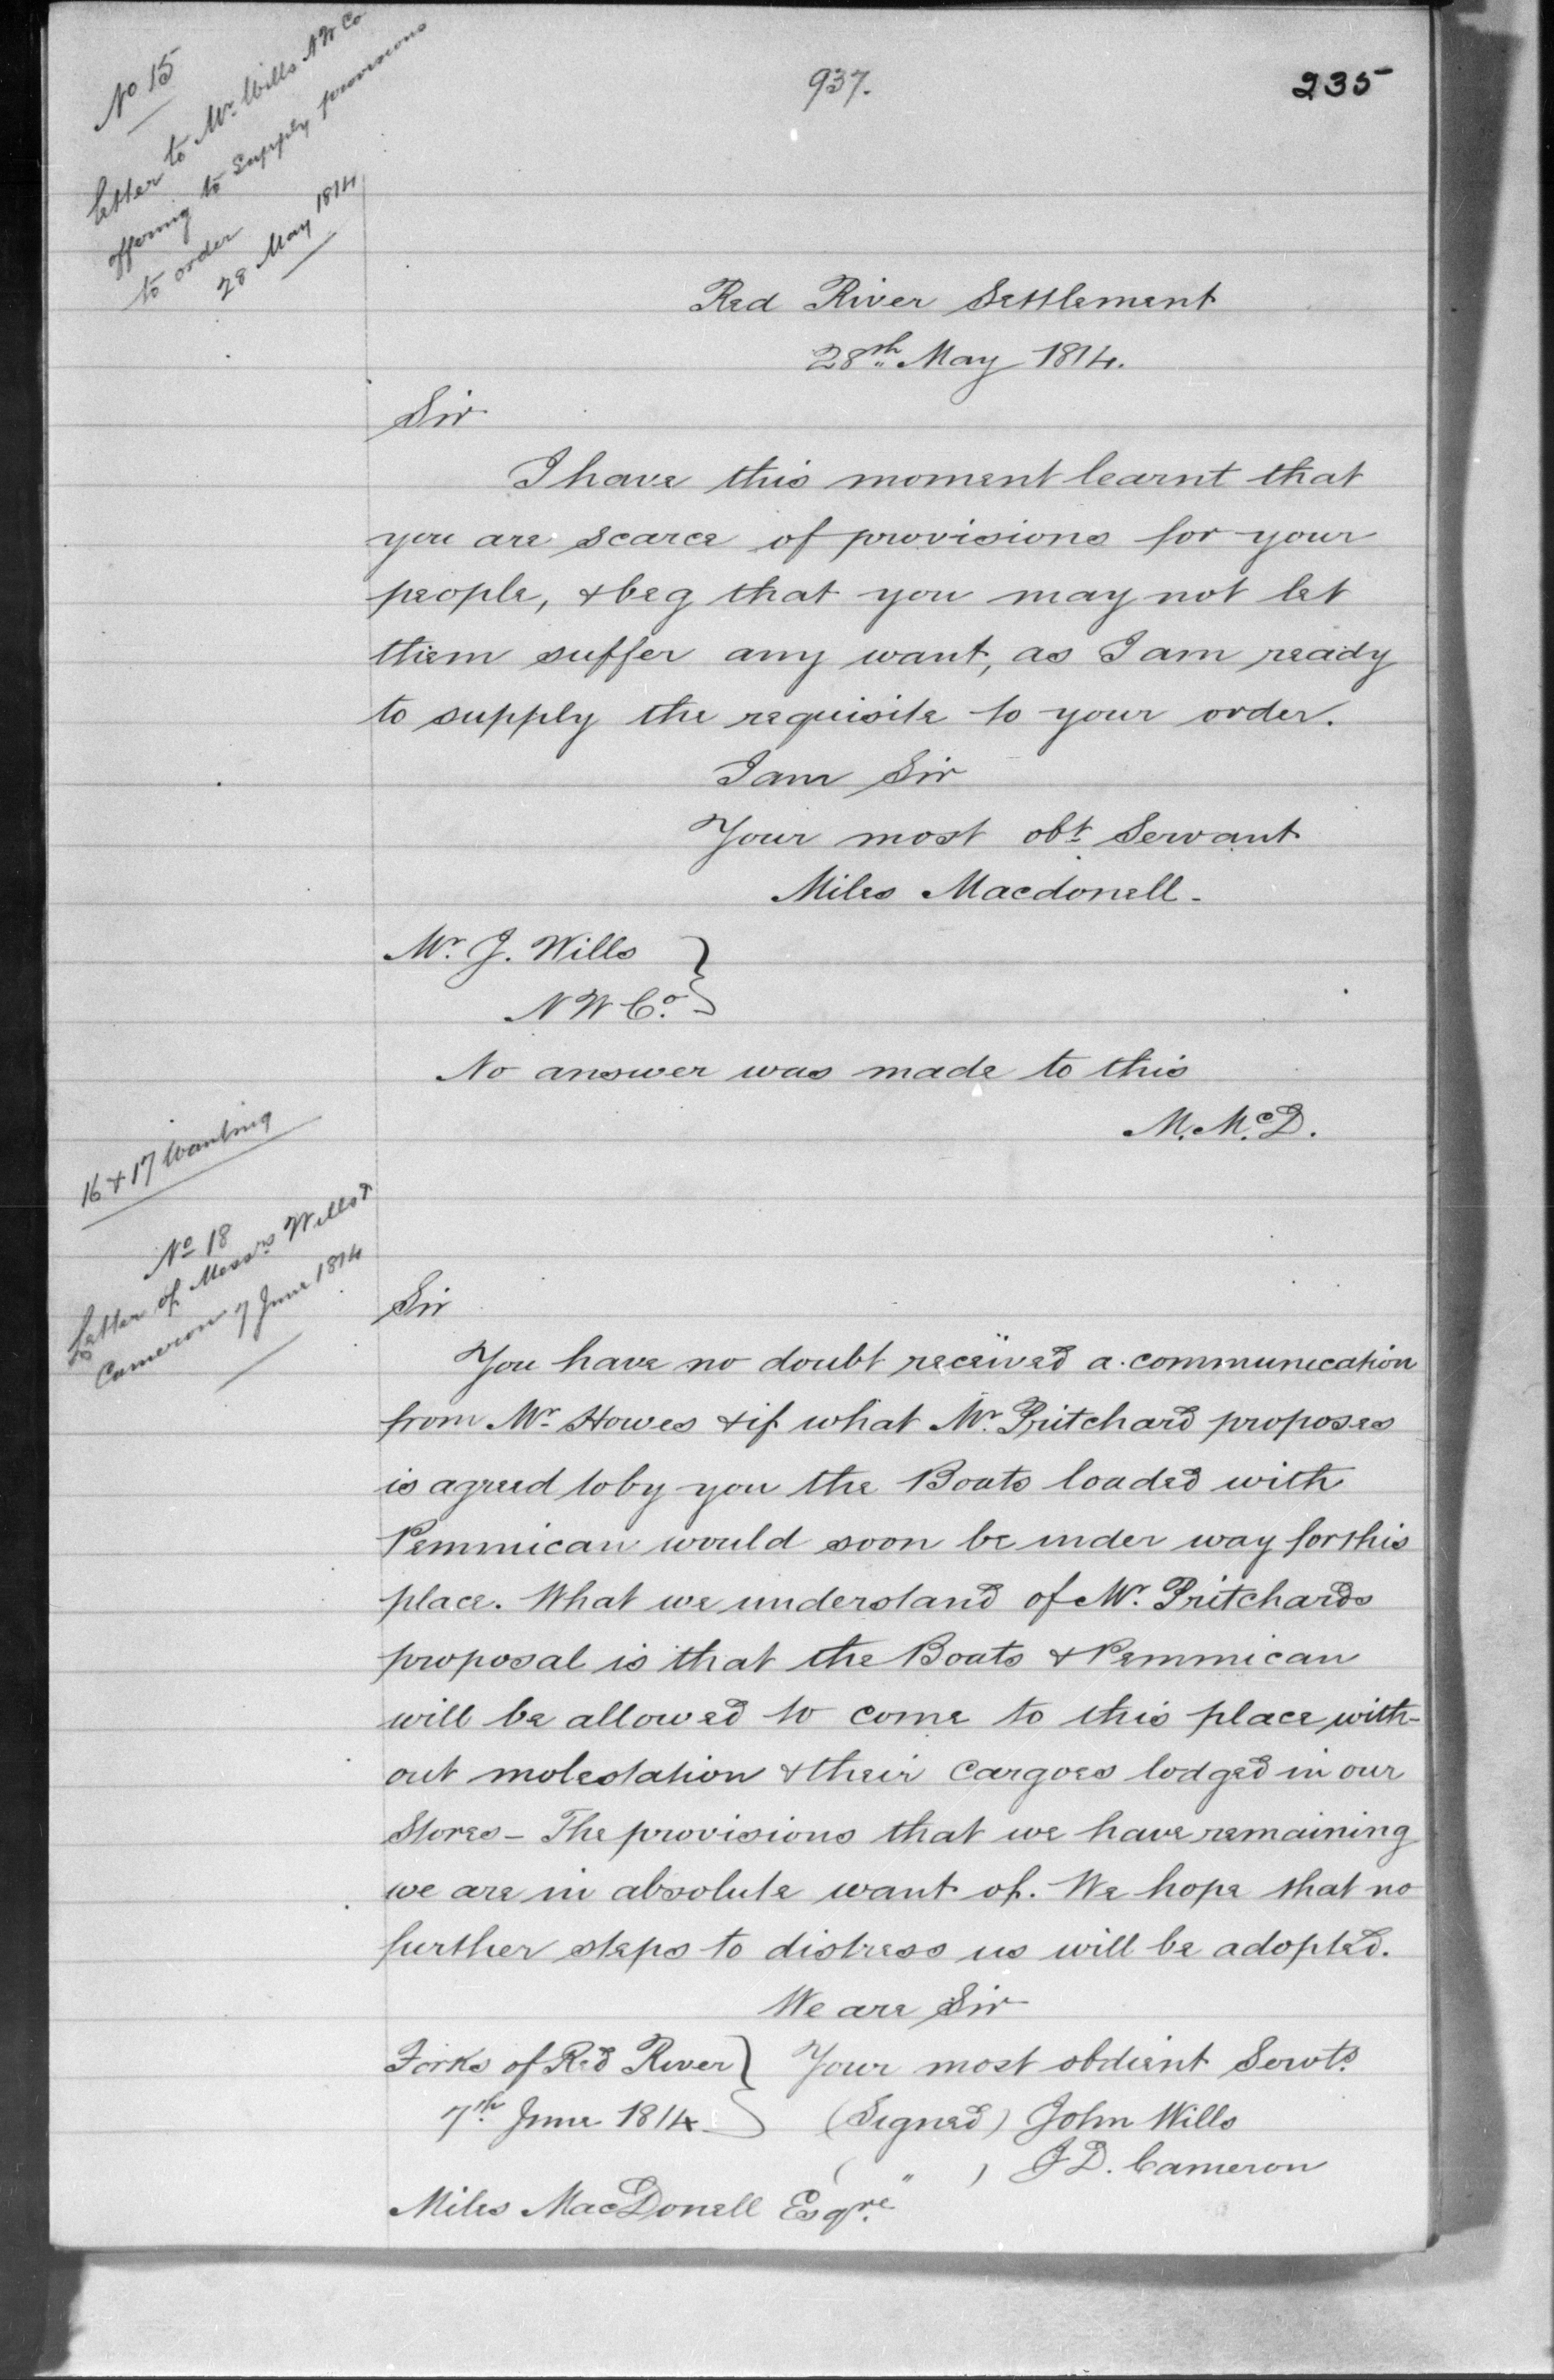 937.
235
No 15
Letter to Mr. Wills N W Co
offering to Supply provisions
to order
28 May 1814
Red River Settlement
28th May 1814.
Sir
I have this moment learnt that
you are scarce of provisions for your
people, & beg that you may not let
them suffer any want, as I am ready
to supply the requisite to your order.
I am Sir
Your most obt Servant
Miles Macdonell.
Mr. J. Wills
N W Co.
No answer was made to this
M. McD.
16 & 17 Wanting
No 18
Letter of Messrs Wills &
Cameron 7 June 1814
Sir
You have no doubt received a communication
from Mr. Howes & if what Mr. Pritchard proposes
is agreed to by you the Boats loaded with
Pemmican would soon be under way for this
place. What we understand of Mr. Pritchards
proposal is that the Boats & Pemmican
will be allowed to come to this place with-
out molestation & their Cargoes lodged in our
Stores - The provisions that we have remaining
we are in absolute want of. We hope that no
further steps to distress us will be adopted.
We are Sir
Forks of Red River } Your most obdient Servts.
7th June 1814 (Signed) John Wills
( " ) J D. Cameron
Miles MacDonell Esqre.